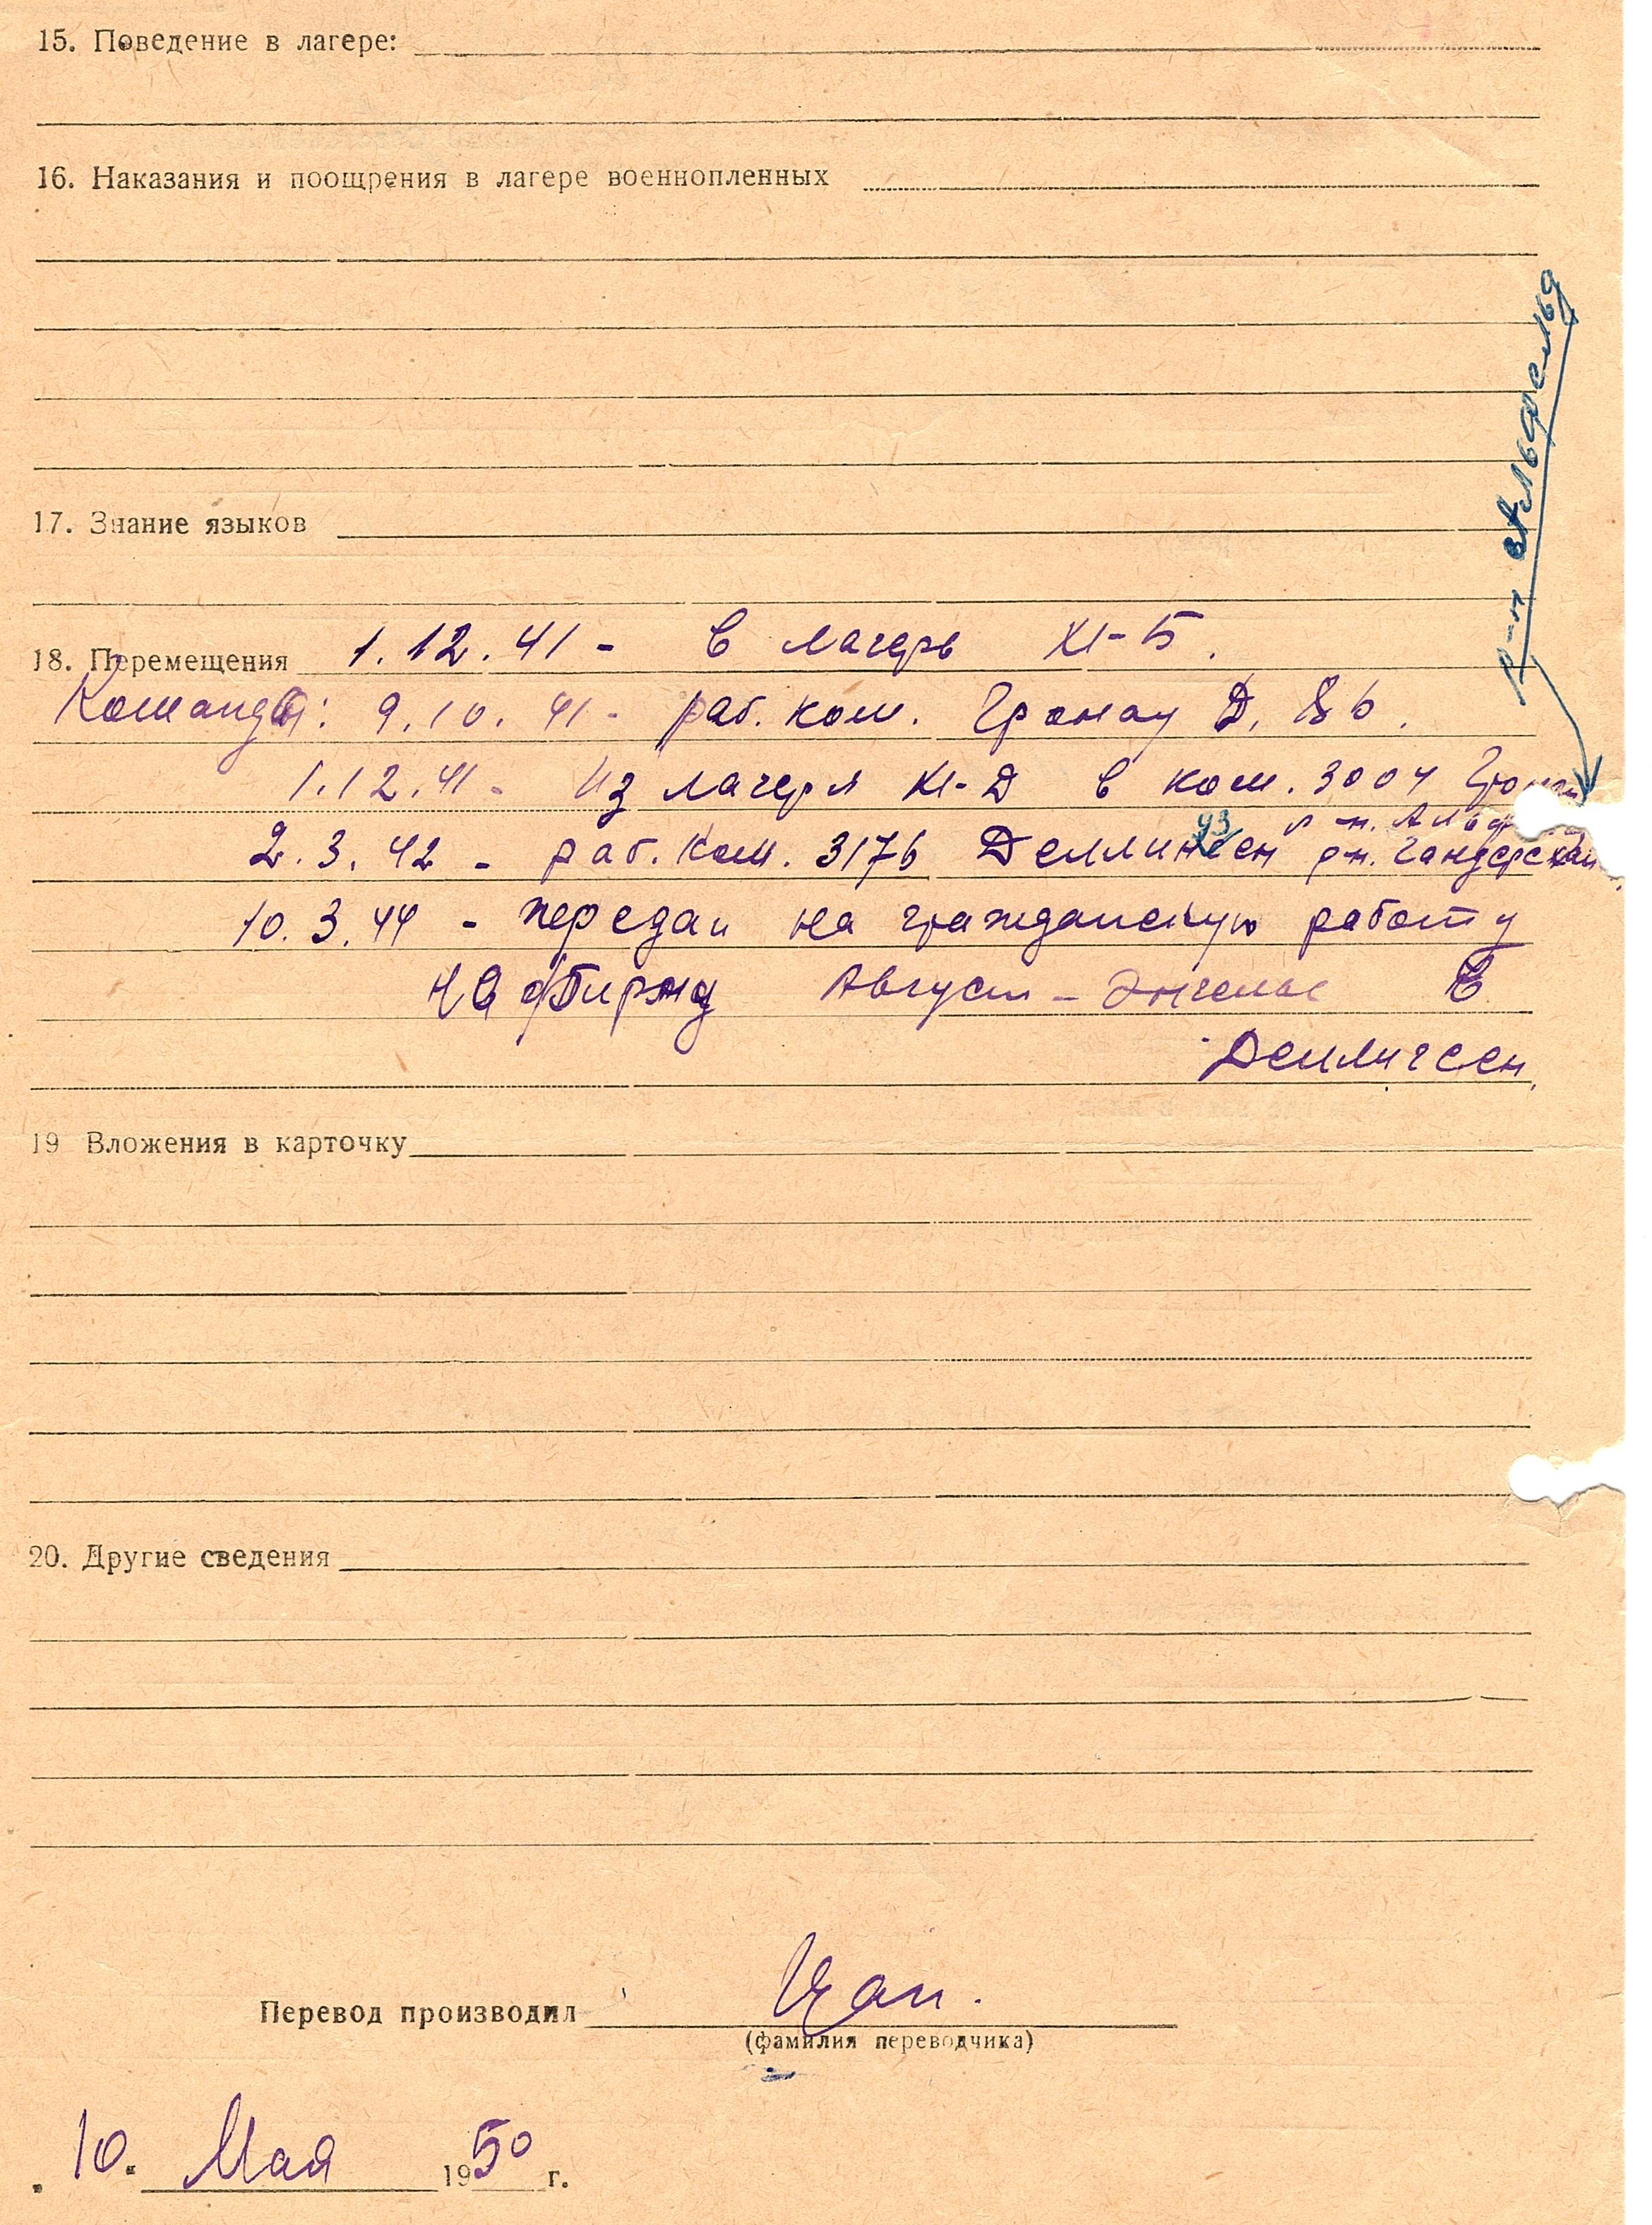 15. Поведение в лагере:
16. Наказания и поощрения в лагере военнопленных
17. Знание языков
р-н Альфельд
18. Перемещения 1.12.41 - в лагерь XI-Б.
Команды: 9.10.41 - раб. ком. Гронау Д.
1.12.41 - Из лагеря XI-Д в ком. 3004
р-н.
2.3.42 - раб. ком. 3176 р-н.
10.3.44 - передан на гражданскую работу
на фирму Август - Энгельс в
Деллигсен.
19 Вложения в карточку
20. Другие сведения
Перевод производил
(фамилия переводчика)
10. Мая 1950 г.